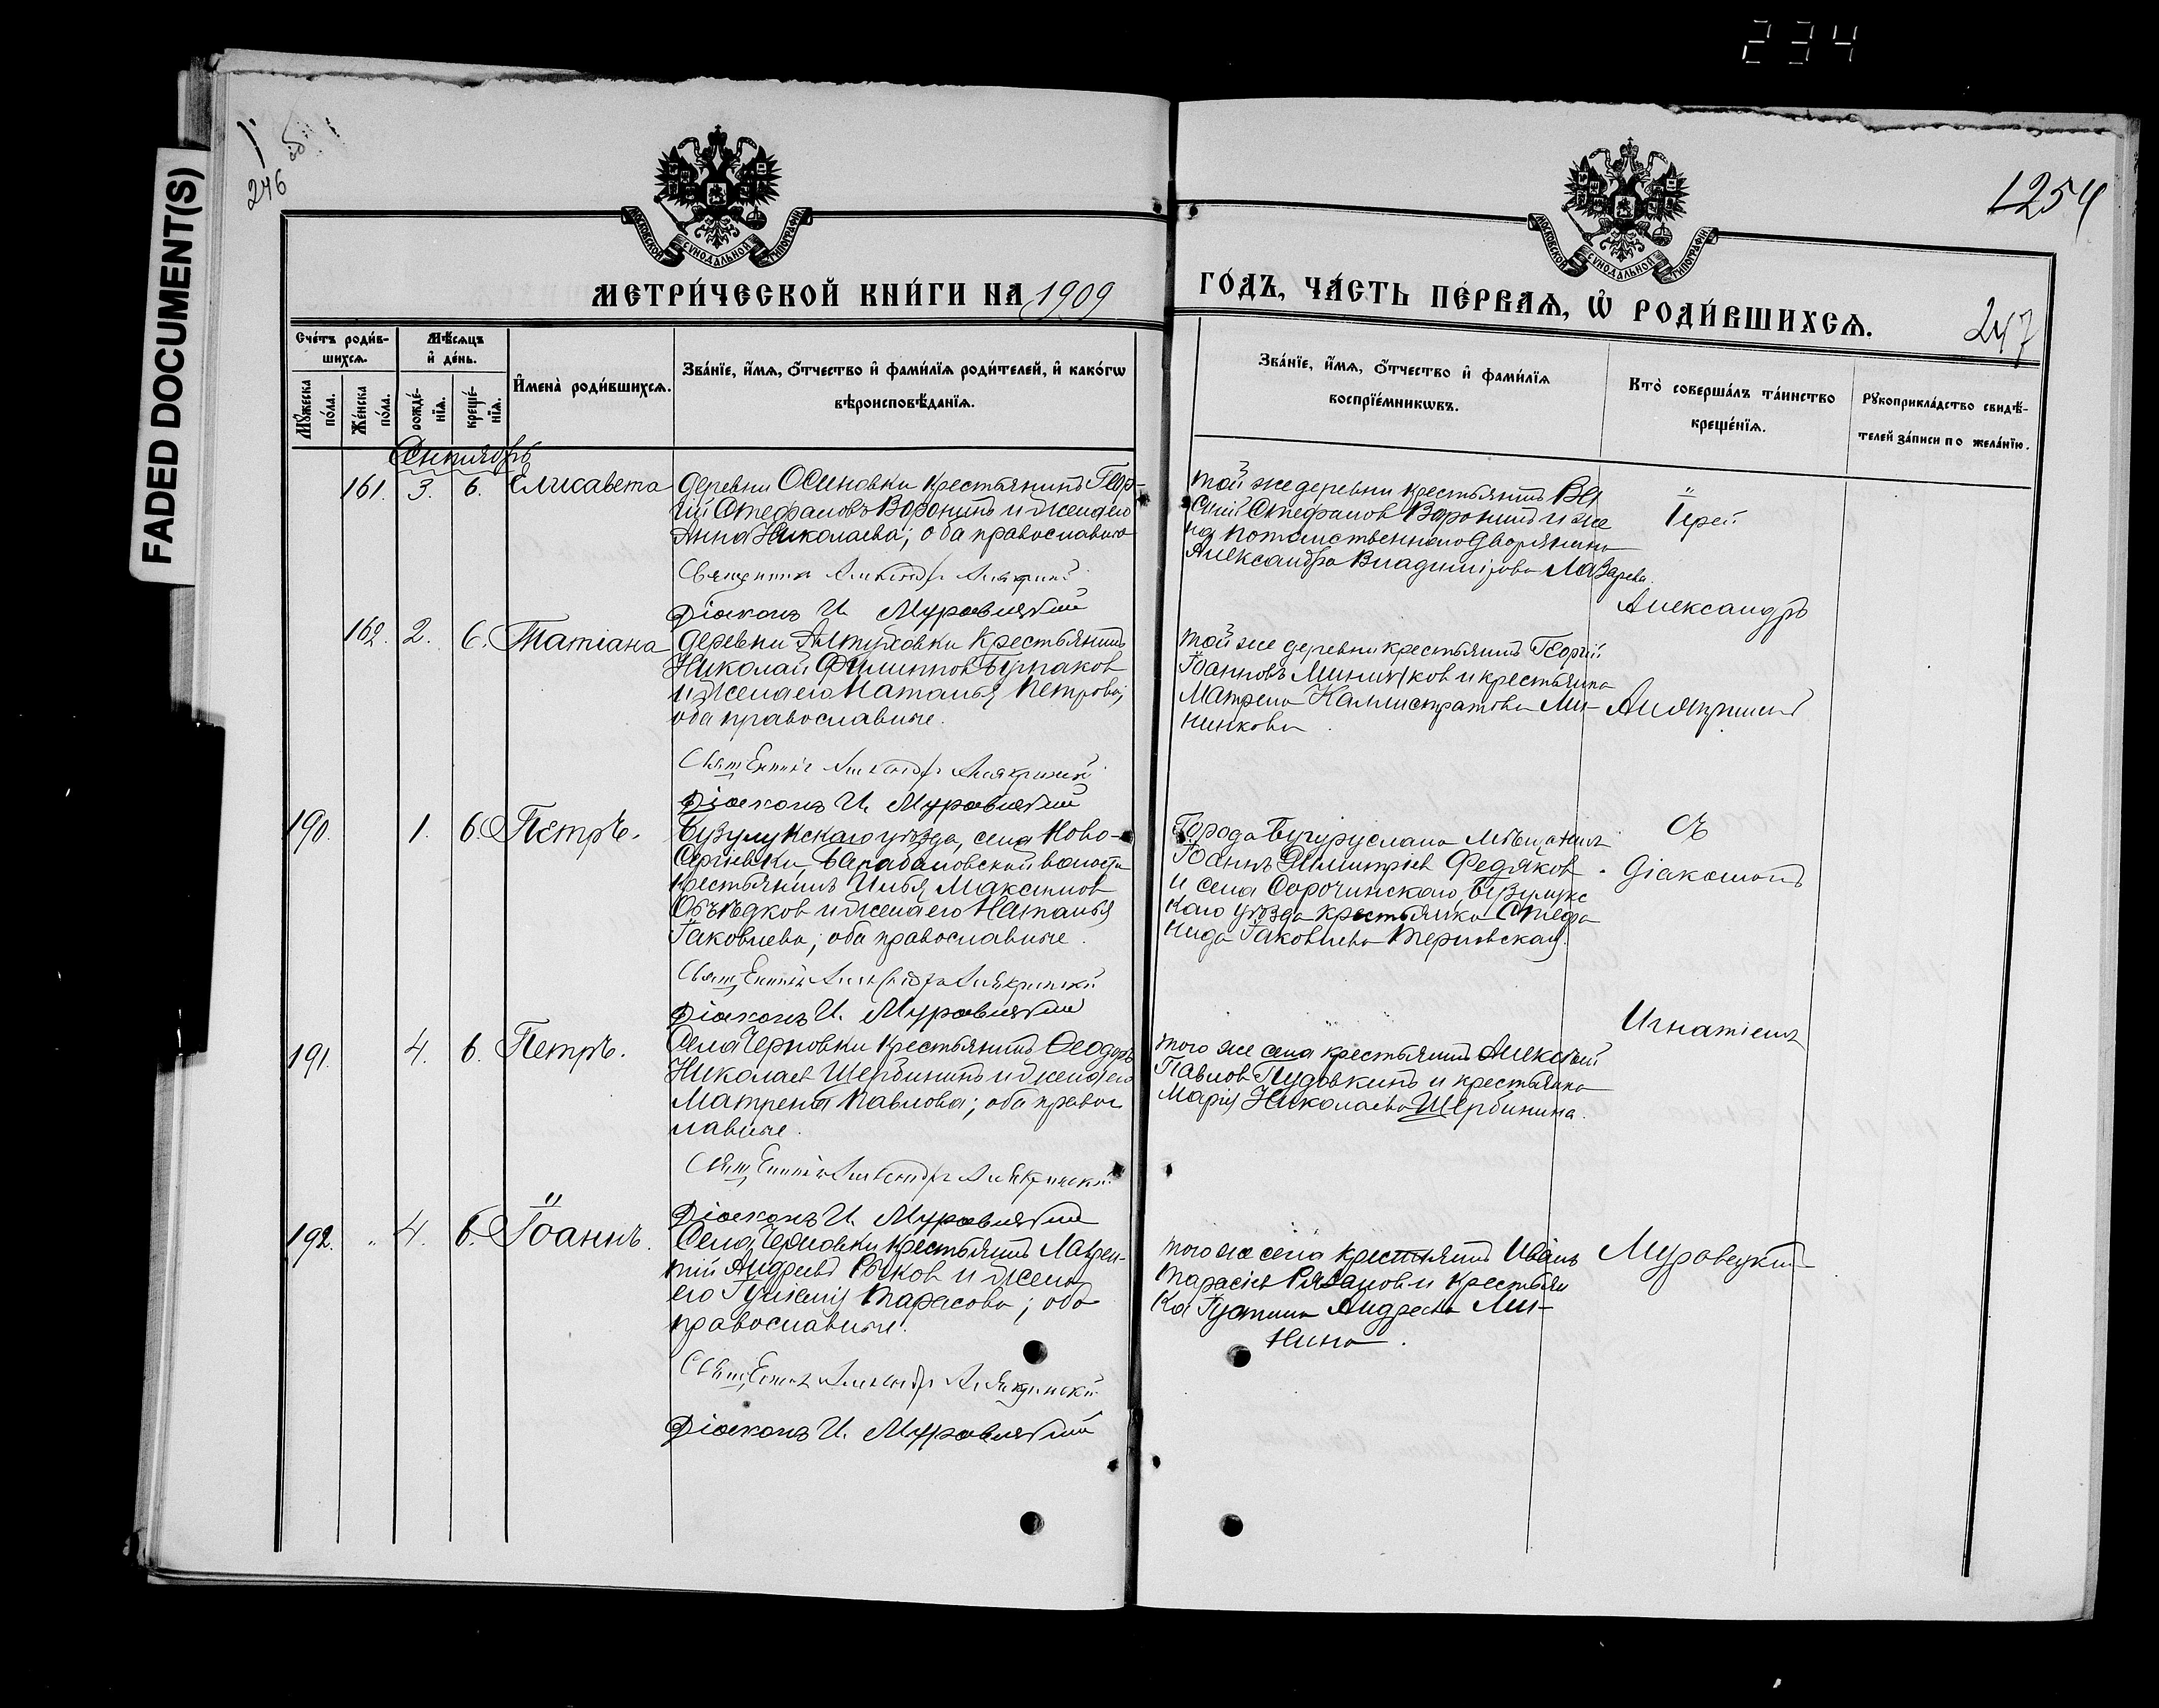 234
FADED DOCUMENT(S)
246
1254
МОСКОВСКОЙ СѴНОДАЛЬНОЙ ТИПОГРАФІИ
МОСКОВСКОЙ СѴНОДАЛЬНОЙ ТИПОГРАФІИ
МЕТРИ́ЧЕСКОЙ КНИ́ГИ НА 1909
ГО́ДЪ, ЧА́СТЬ ПЕ́РВАѦ, Ѿ РОДИ́ВШИХСѦ.
247
Сче́тъ роди́в-
шихсѧ.
Мѣ́сѧцъ
и҆ де́нь.
Мꙋ́жеска
по́ла.
Же́нска
по́ла.
рожде́-
нїѧ.
креще́-
нїѧ.
И҆мена̀ роди́вшихсѧ.
Зва́нїе, и҆́мѧ, о҆́тчество и҆ фами́лїѧ роди́телей, и҆ како́гѡ
вѣроисповѣ́данїѧ.
Зва́нїе, и҆́мѧ, о҆́тчество и҆ фами́лїѧ
воспрїе́мникѡвъ.
Кто̀ соверша́лъ та́инство
креще́нїѧ.
Рꙋкоприкла́дство свидѣ́-
телей за́писи по жела́нїю.
Сентябрь
161. 3. 6. Елисавета
деревни Осиновки крестьянинъ Геор-
гій Стефановъ Воронинъ и жена его
Анна Николаева; оба православные
Священник Александръ
Діаконъ И. Муравлецкій
той же деревни крестьянинъ Ва
силій Стефанов Воронинъ и же
на потомственнаго дворянина
Александра Владимірова Лазарева.
Іерей
Александръ
162. 2. 6. Татіана
деревни Алтуховки крестьянинъ
Николай Филиппов Бурлаков
и жена его Наталья Петрова;
оба православные.
Священникъ Александръ
Діаконъ И. Муравлецкій
той же деревни крестьянинъ Георгій
Іоанновъ Мининков и крестьянка
Матрена Каллистратова Ми-
нинкова.
190. 1. 6. Петръ.
Бузулукскаго уѣзда, села Ново-
Сергіевки, Барабановской волости
крестьянинъ Илья Максимов
Объѣдков и жена его Наталья
Іаковлева; оба православные.
Священникъ Александръ
Діаконъ И. Муравлецкій
Города Бугуруслана мѣщанинъ
Іоаннъ Димитріев Федяков
и села Сорочинскаго, Бузулукс
каго уѣзда крестьянка Стефа
нида Іаковлева Терновская.
съ
діакономъ
Игнатіемъ
191. 4. 6. Петръ.
Села Черновки крестьянинъ Ѳеодоръ
Николаев Щербининъ и жена его
Матрена Павлова; оба правос
лавные.
Священникъ Александръ
Діаконъ И. Муравлецкій
того же села крестьянинъ Алексѣй
Павлов Пудовкинъ и крестьянка
Марія Николаева Щербинина.
192. " 4. 6. Іоаннъ.
Села Черновки крестьянинъ Лаврен-
тій Андреевъ Быков и жена
его Іуліанія Тарасова; оба
православные.
Священникъ Александръ
Діаконъ И. Муравлецкій
того же села крестьянинъ Иванъ
Тарасіев Рязанов и крестьян
ка Іустина Андреева Ми-
нина.